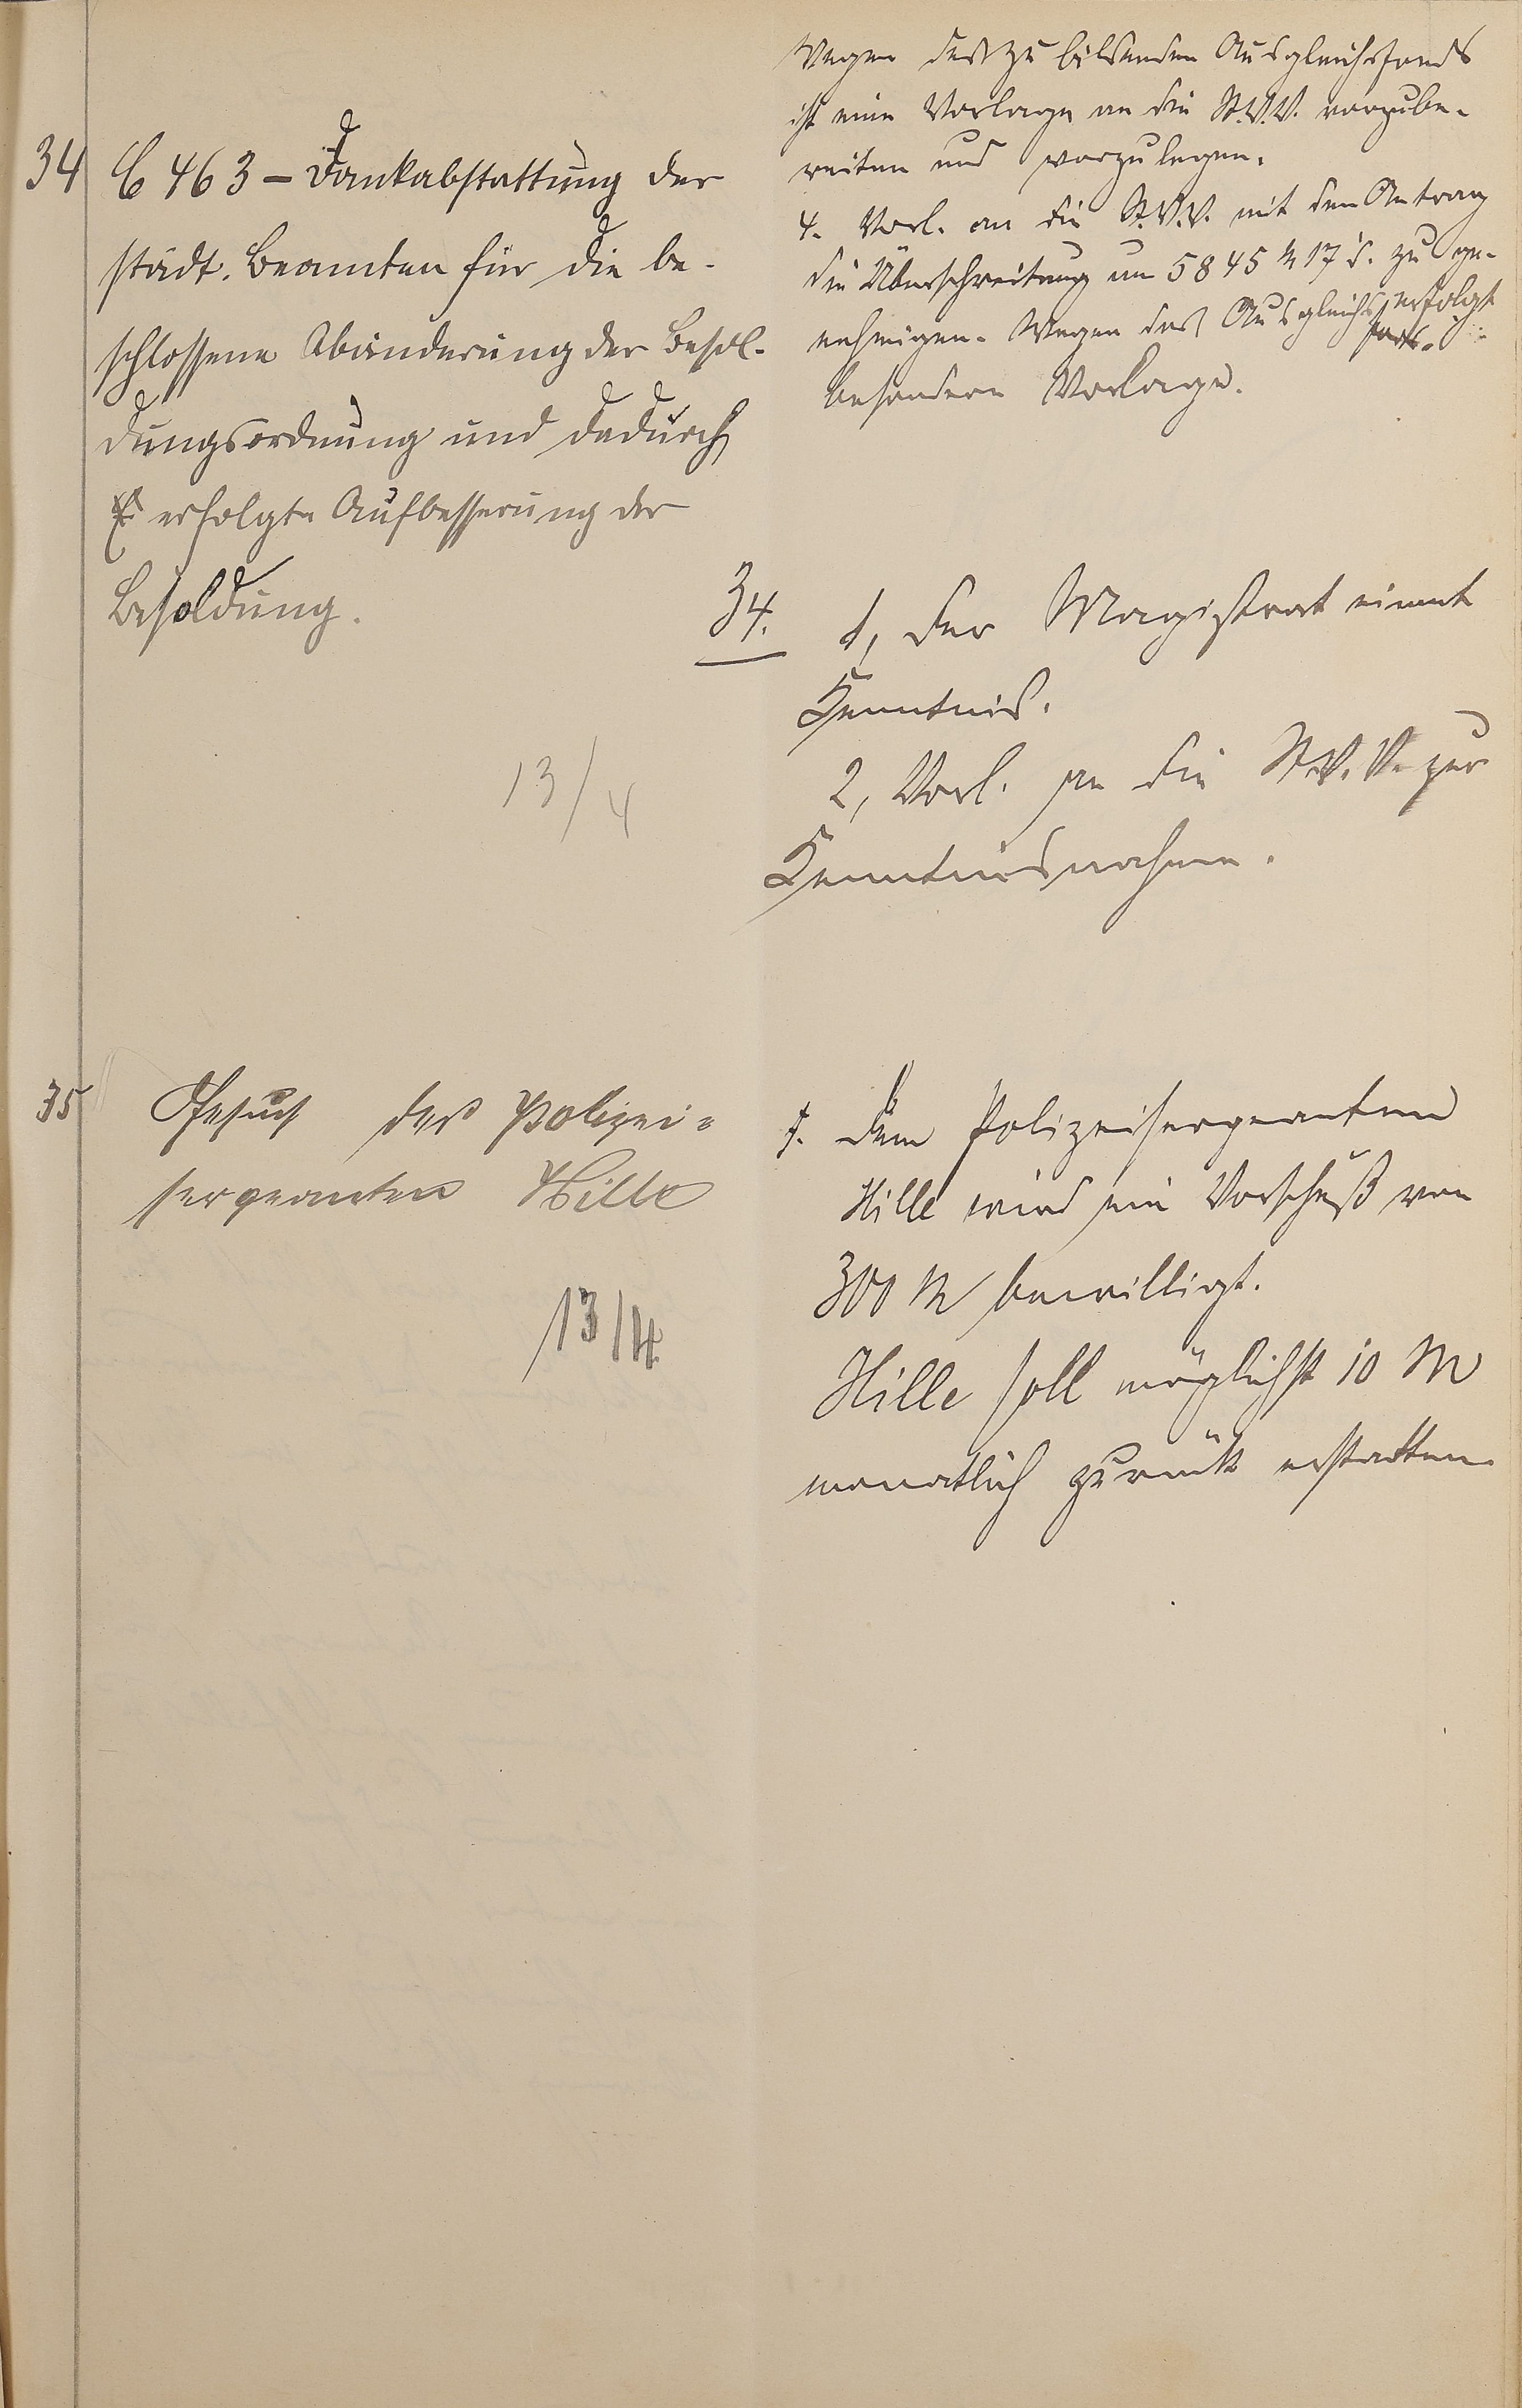 Wegen des zu bildenden Ausgleichsfonds
ist eine Vorlage an die St.V.V. vorzube-
reiten und vorzulegen.
4. Vorl. an die St.V.V. mit dem Antrag
die Überschreitung um 5845 M 17 d. zu ge-
nehmigen. Wegen des Ausgleichsfonds erfolgt
besondere Vorlage.
34 C 463 - Dankabstattung der
städt. Beamten für die be-
schlossene Abänderung der Besol-
dungsordnung und dadurch
erfolgte Aufbesserung der
Besoldung.
13/4
34. 1, Der Magistrat nimmt
Kenntnis.
2, Vorl. an die St.V.V. zur
Kenntnisnahme.
35 Gesuch des Polizei-
sergeanten Hille
13/4
1. Dem Polizeisergeanten
Hille wird ein Vorschuß von
300 M bewilligt.
Hille soll möglichst 10 M
monatlich zurück erstatten.